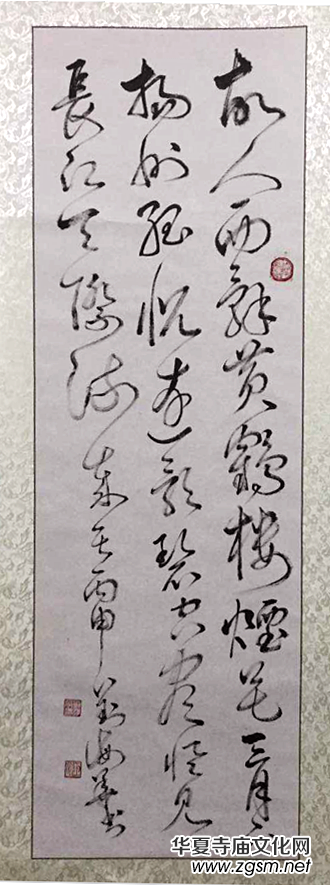 故人西辭黃鶴樓煙花三月下
揚州孤帆遠影碧空盡唯見
長江天際流 丙申
华夏寺庙文化网
www.zgsm.net